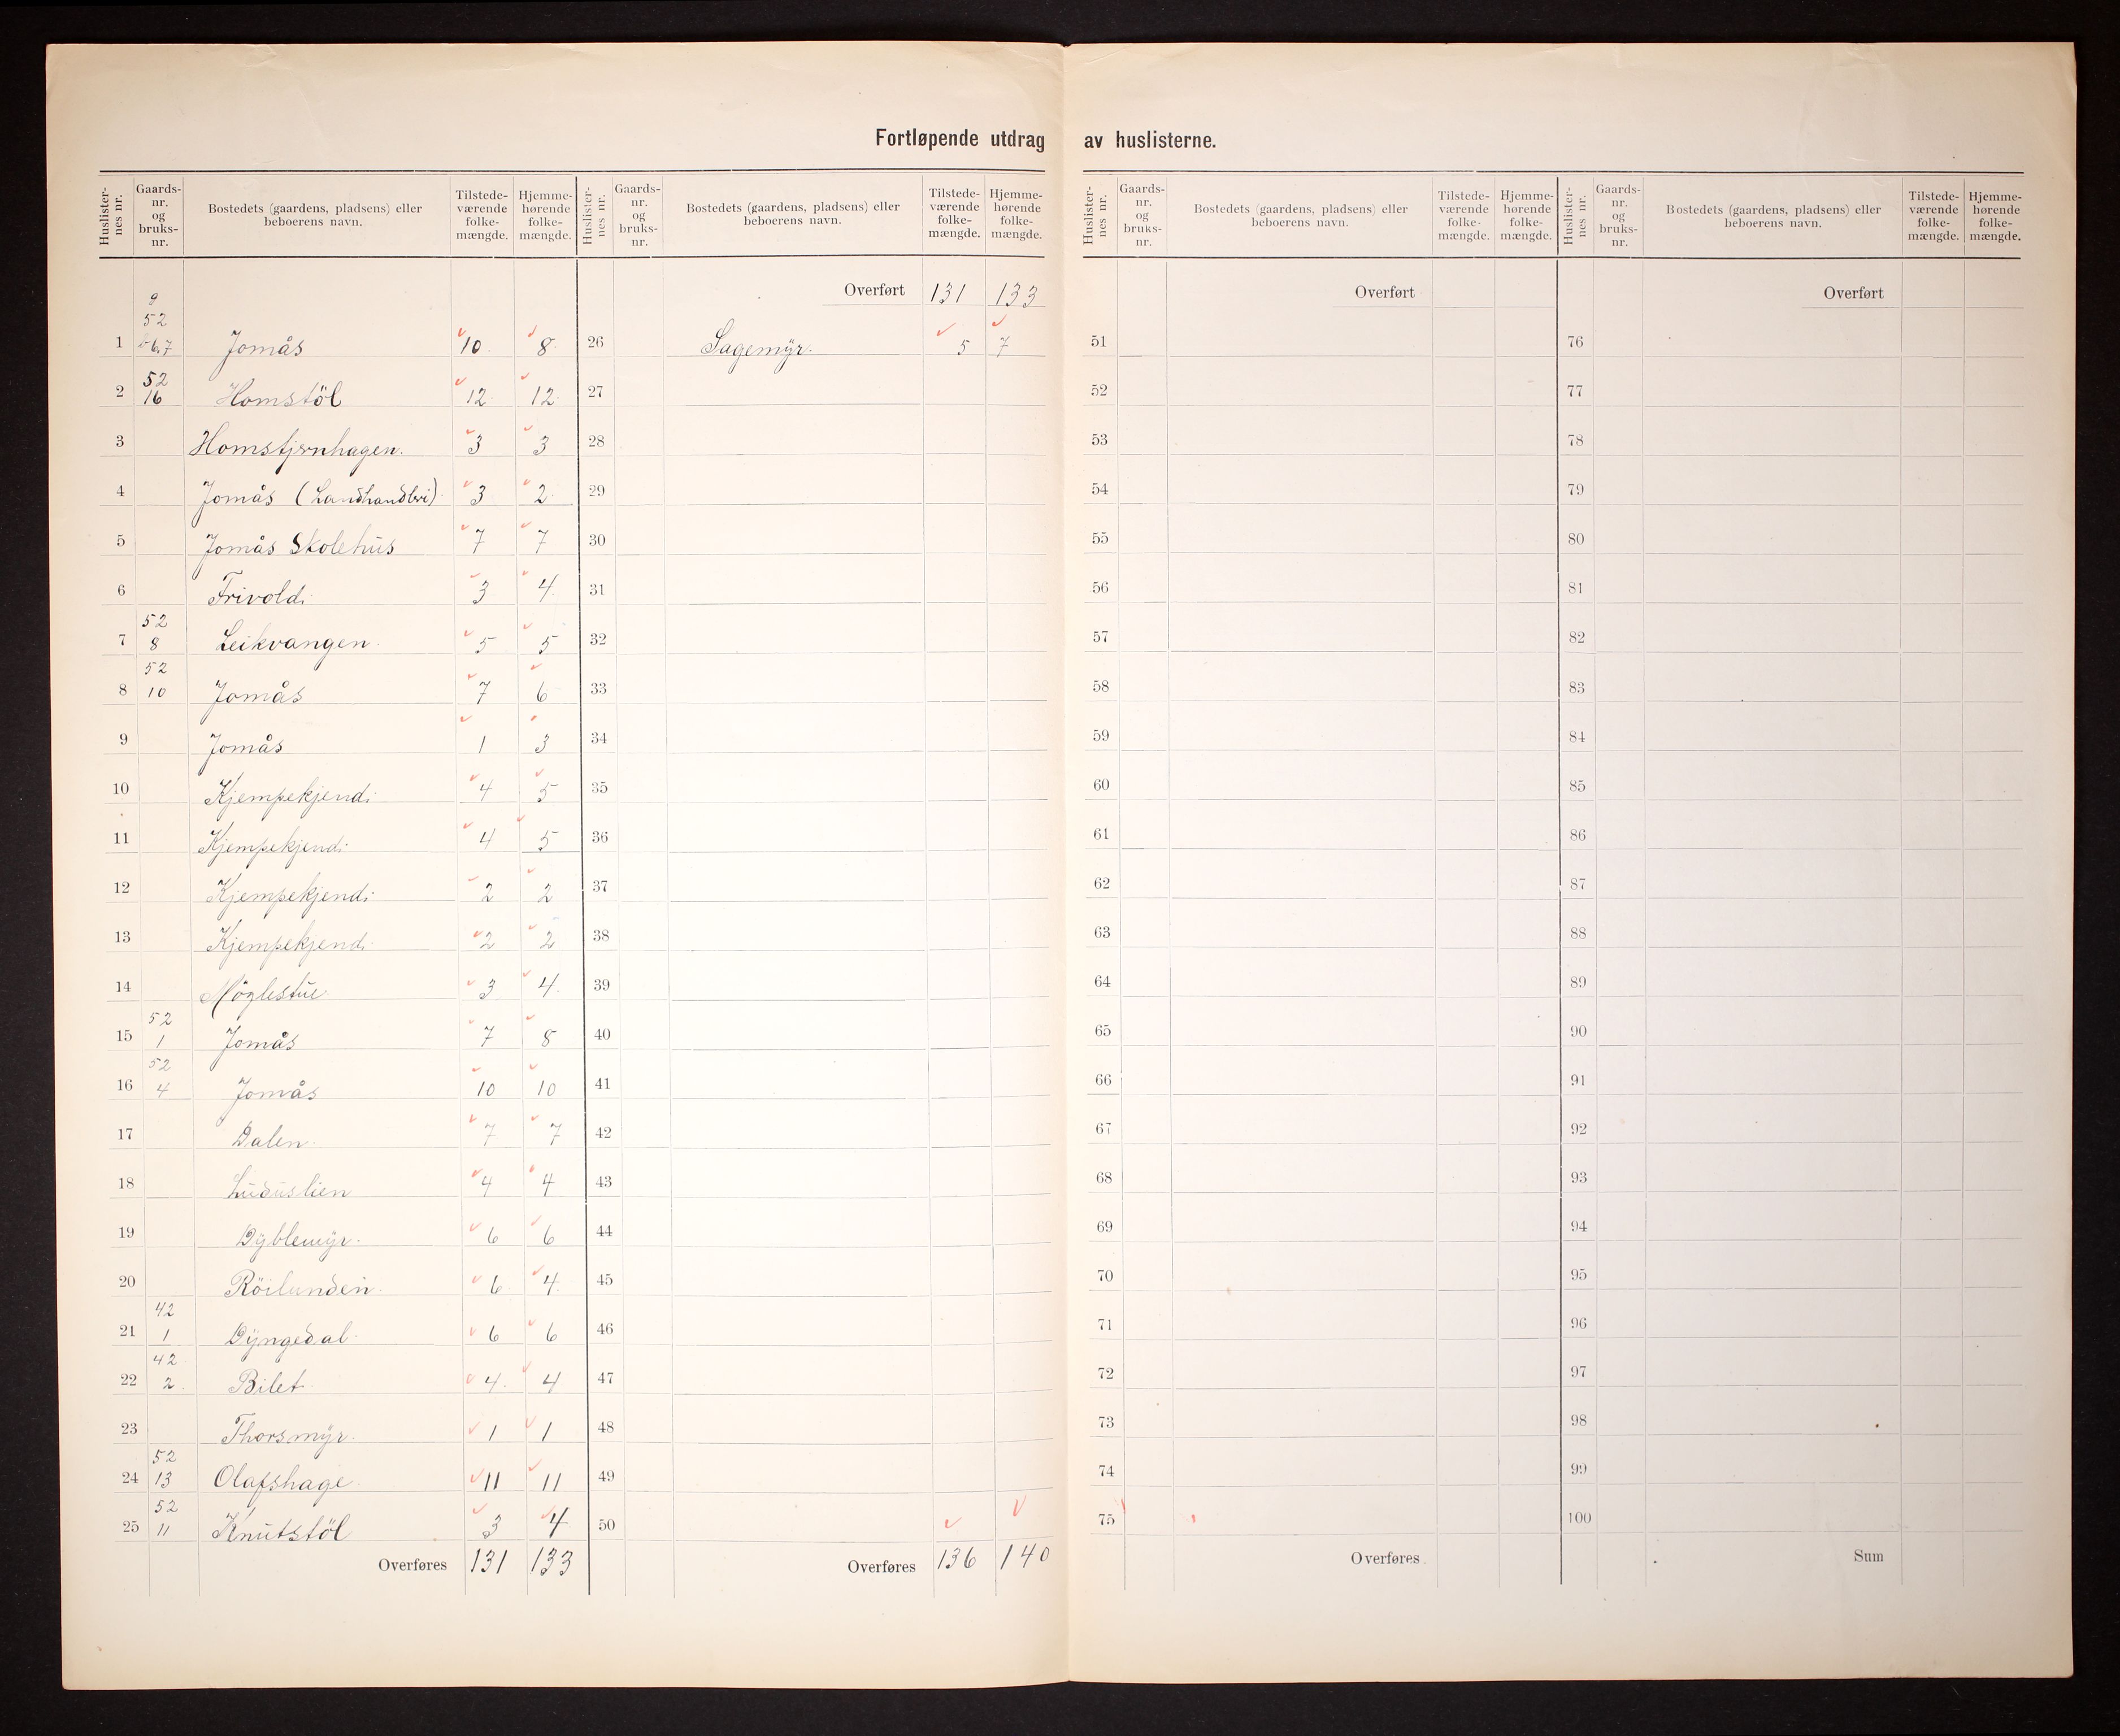 Fortløpende utdrag av huslisterne.
Huslister-nes nr. | Gaards-nr. og bruks-nr. | Bostedets (gaardens, pladsens) eller beboerens navn. | Tilstede-værende folke-mængde. | Hjemme-hørende folke-mængde.
Huslister-nes nr. | Gaards-nr. og bruks-nr. | Bostedets (gaardens, pladsens) eller beboerens navn. | Tilstede-værende folke-mængde. | Hjemme-hørende folke-mængde.
Huslister-nes nr. | Gaards-nr. og bruks-nr. | Bostedets (gaardens, pladsens) eller beboerens navn. | Tilstede-værende folke-mængde. | Hjemme-hørende folke-mængde.
Huslister-nes nr. | Gaards-nr. og bruks-nr. | Bostedets (gaardens, pladsens) eller beboerens navn. | Tilstede-værende folke-mængde. | Hjemme-hørende folke-mængde.
1 52 Jomås 10 8
2 52 16 Homstöl 12 12
3 Homstjernhagen. 3 3
4 Jomås (Landhandleri) 3 2
5 Jomås Skolehus 7 7
6 Frivold. 3 4
7 52 8 Leikvangen 5 5
8 52 10 Jomås 7 6
9 Jomås 1 3
10 Kjempekjend. 4 5
11 Kjempekjend. 4 5
12 Kjempekjend. 2 2
13 Kjempekjend. 2 2
14 Möglestue 3 4
15 52 1 Jomås 7 8
16 52 4 Jomås 10 10
17 Dalen 7 7
18 4 4
19 Dyblemyr. 6 6
20 Röilunden. 6 4
21 42 1 Dyngedal 6 6
22 42 2 Bilet 4 4
23 Thorsmyr. 1 1
24 52 13 Olafshage 11 11
25 52 11 Knutstöl 3 4
Overføres 131 133
Overført 131 133
26 Sagemyr. 5 7
27
28
29
30
31
32
33
34
35
36
37
38
39
40
41
42
43
44
45
46
47
48
49
50
Overføres 136 140
Overført
51
52
53
54
55
56
57
58
59
60
61
62
63
64
65
66
67
68
69
70
71
72
73
74
75
Overføres
Overført
76
77
78
79
80
81
82
83
84
85
86
87
88
89
90
91
92
93
94
95
96
97
98
99
100
Sum